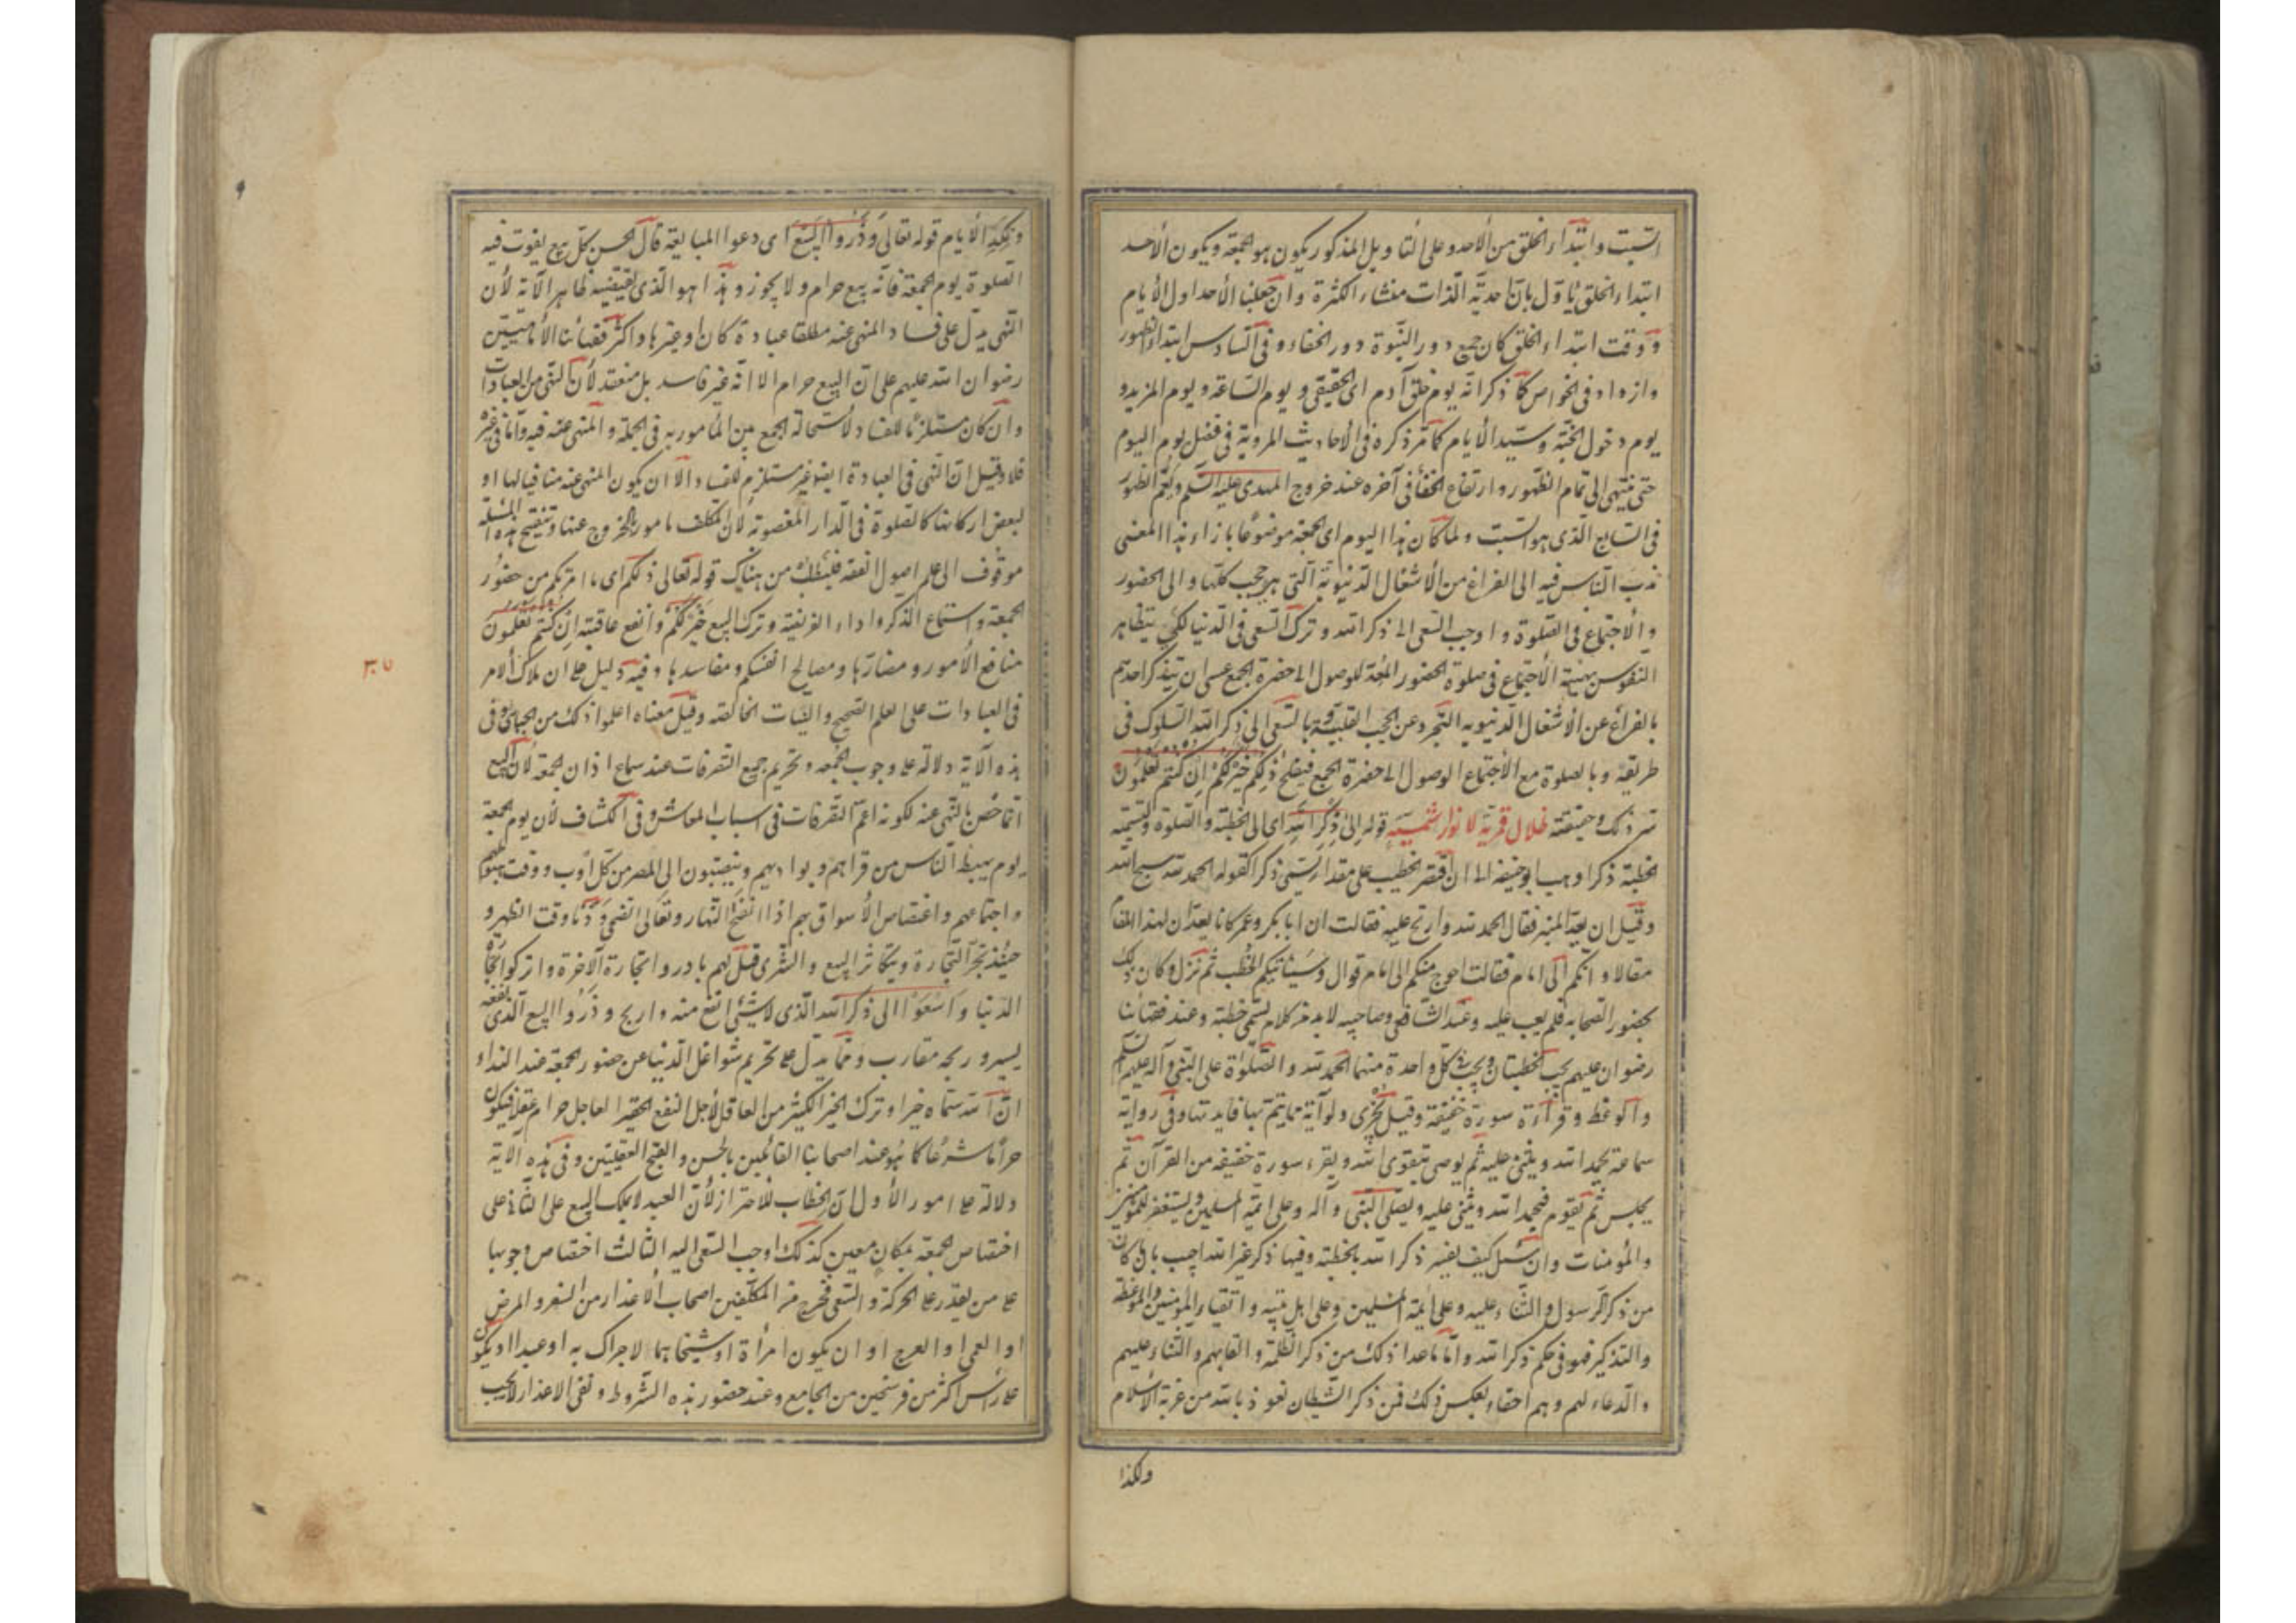 السبت وابتداء الخلق من الأحد وعلى التأويل المذكور يكون هو الجمعة ويكون الأحد
ابتداء الخلق يأول بان احدية الذات منشاء الكثرة وان جعلنا الأحد اول الأيام
ووقت ابتداء الخلق كان جميع دور النبوة دور الخفاء وفى السادس ابتداء الظهور
وازداد فى الخواص كما ذكر انه يوم خلق آدم اى الحقيقى ويوم الساعة ويوم المزيد و
يوم دخول الجنة وسيد الأيام كما مر ذكره فى الأحاديث المروية فى فضل يوم اليوم
حتى ينتهى الى تمام الظهور وارتفاع الخفأ فى آخره عند خروج المهدى عليه السلم ويعم الظهور
فى السابع الذى هو السبت ولما كان هذا اليوم اى الجمعة موضوعا بازاء هذا المعنى
ندب الناس فيه الى الفراغ من الأشغال الدنيوية التى هى حجب كلها والى الحضور
والأجتماع فى الصلوة واوجب السعى الى ذكر الله وترك السعى فى الدنيا لكى يتظاهر
النفوس بهيئة الأجتماع فى صلوة الحضور المعدة للوصول الى حضرة الجمع عسى ان يتفكر احدهم
بالفراغ عن الأشغال الدنيويه التجرد عن الحجب القلبية وبالسعى الى ذكر الله السلوك فى
طريقه وبالصلوة مع الأجتماع الوصول الى حضرة الجمع فيفلح ذلكم خير لكم ان كنتم تعلمون
سر ذلك وحقيقته ظلال قرية لانوار شمسية قوله الى ذكر الله اى الى الخطبة والصلوة ولتسمية
الخطبة ذكرا وهب ابو حنيفه الى ان اقتصر الخطيب على مقدار يسمى ذكرا كقوله الحمد لله سبح الله
وقيل ان صعد المنبر فقال الحمد لله وارتج عليه فقالت ان ابا بكر وعمر كانا يعدان لهذا المقام
مقالا وانكم الى امام فعال احوج منكم الى امام قوال وسيأتيكم الخطب ثم نزل وكان ذلك
بحضور الصحابه فلم يعب عليه وعند الشافعى وصاحبيه لا بد من كلام يسمى خطبة وعند فقهائنا
رضوان عليهم يجب الخطبتان ويجب فى كل واحدة منهما الحمد لله والصلوة على النبى وآله عليهم السلم
والوعظ وقراءة سورة خفيفة وقيل يجزى ولو آية مما يتم بها فايدتها وفى رواية
سماعة يحمد الله ويثنى عليه ثم يوصى بتقوى الله ويقرء سورة خفيفه من القرآن ثم
يجلس ثم يقوم فيحمد الله ويثنى عليه ويصلى النبى وآله وعلى ائمة المسلمين ويستغفر للمؤمنين
والمؤمنات وان سئل كيف يفسر ذكر الله بالخطبة وفيها ذكر غير الله اجيب بان ما كان
من ذكر الرسول والثناء عليه وعلى ايمة المسلمين وعلى اهل بيته واتقياء المؤمنين والموعظة
والتذكير فهو فى حكم ذكر الله واما ماعدا ذلك من ذكر الظلمة والقابهم والثناء عليهم
والدعاء لهم وهم احقاء بعكس ذلك فمن ذكر الشيطان نعوذ بالله من غربة الأسلام
ولكذا
ونكد الأيام قوله تعالى وذروا البيع اى دعوا المبايعة قال الحسن كل بيع يفوت فيه
الصلوة يوم الجمعة فانه بيع حرام ولا يجوز وهذا هو الذى يقتضيه ظاهر الآية لأن
النهى يدل على فساد المنهى عنه مطلقا عبادة كان او غيرها واكثر فقهائنا الأماميين
رضوان الله عليهم على ان البيع حرام الا انه غير فاسد بل منعقد لأن النهى من العبادات
وان كان مستلزما للفساد لأستحالة الجمع بين المأموربه فى الجملة والمنهى عنه فيه واما فى غيره
فلا وقيل ان النهى فى العبادة ايضا غير مستلزم للفساد الا ان يكون المنهى عنه منافيا لها او
لبعض اركانها كالصلوة فى الدار المغصوبة لأن المكلف مامور بالخروج عنها وتنقيح هذه المسئلة
موقوف الى علم اصول الفقه فليطلب من هناك قوله تعالى ذلكم اى ما امرتكم من حضور
الجمعة واستماع الذكر واداء الفريضة وترك البيع خير لكم وانفع عاقبة ان كنتم تعلمون
منافع الأمور ومضارها ومصالح انفسكم ومفاسدها وفيه دليل على ان ملاك الامر
٣٠٧
فى العبادات على العلم الصحيح والنيات الخالصه وقيل معناه اعلموا ذلك من الجبائى وفى
هذه الآية دلالة على وجوب الجمعه وتحريم جميع التصرفات عند سماع اذان الجمعة لأن البيع
انما خص بالنهى عنه لكونه اعم التصرفات فى اسباب المعاش وفى الكشاف لأن يوم الجمعة
يوم يهبط الناس من قراهم وبواديهم وينصبون الى المصر من كل اوب ووقت هبوطهم
واجتماعهم واغتصاص الأسواق بهم اذا انتفخ النهار وتعالى الضحى ودنا وقت الظهر و
حينئذ تحر التجارة ويتكاثر البيع والشرى قيل لهم بادروا تجارة الآخرة واتركوا تجارة
الدنيا واسعوا الى ذكر الله الذى لا شيئ انفع منه واربح وذروا البيع الذى نفعه
يسير وربحه مقارب ومما يدل على تحريم شواغل الدنيا عن حضور الجمعة عند النداء
ان الله سماه خيرا وترك الخير الكثير من العاقل لأجل النفع الحقير العاجل حرام عقلا فيكون
حراما شرعا كما هو عند اصحابنا القائلين بالحسن والقبح العقليين وفى هذه الآية
دلالة على امور الأول ان الخطاب للأحرار لأن العبد لا يملك البيع على الثانى على
اختصاص الجمعة بمكان معين كذلك اوجب السعى اليه الثالث اختصاص وجوبها
على من يقدر على الحركة والسعى فخرج من المكلفين اصحاب الأعذار من السفر والمرض
او العمى او العرج او ان يكون امرأة او شيخا هما لا حراك به او عبدا او يكون
على رأس اكثر من فرسخين من الجامع وعند حضور هذه الشروط ونفى الاعذار لا يجب